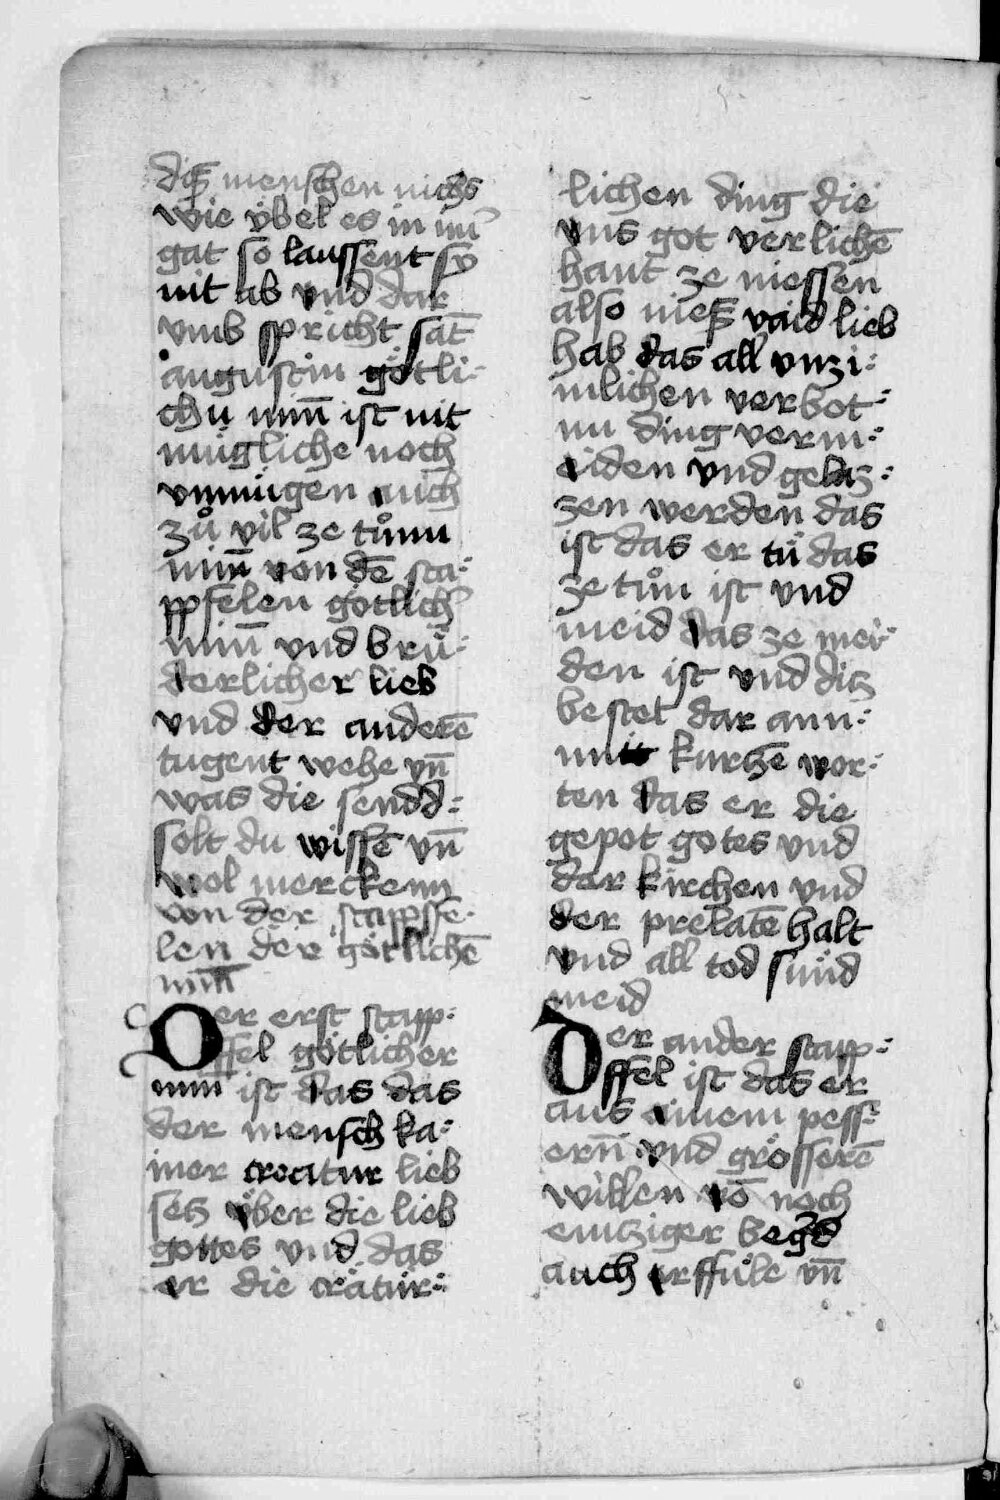 diß menschen nichs
wie übel es in im̄
gat so laussent sy
nit ab vnd dar
vmb spricht sāt
augustin götli-
chu min̄ ist nit
mügliche noch
vnmügen auch
zů vil ze tůnn
min̄ von dē sta-
ppfelen götlich
min̄ vnd brü-
derlicher lieb
vnd der anderē
tugent wehe vn̄
was die sendd-
solt du wissē vn̄
wol merckenn
von der stappffe-
len der götlichē
min̄
Der erst stapp-
ffel götlicher
min ist das das
der mensch ka-
iner creatur lieb
setz über die lieb
gottes vnd das
er die creatur-
lichen ding die
vns got verlichē
haut ze niessen
also nieß vnd lieb
hab das all vnzi-
mlichen verbot-
nu ding verm-
eiden vnd gelaz-
zen werden das
ist das er tů das
ze tůn ist vnd
meid das ze mei-
den ist vnd ditz
bestet dar ann-
mitt kurtzē wor-
ten das er die
gepot gotes vnd
dar kirchen vnd
der prelatē halt
vnd all tod sünd
meid
Der ander stapp-
ffel ist das er
aus einem pess-
ern̄ vnd grösserē
willen vō noch
emtziger begd
auch erffüle vn̄